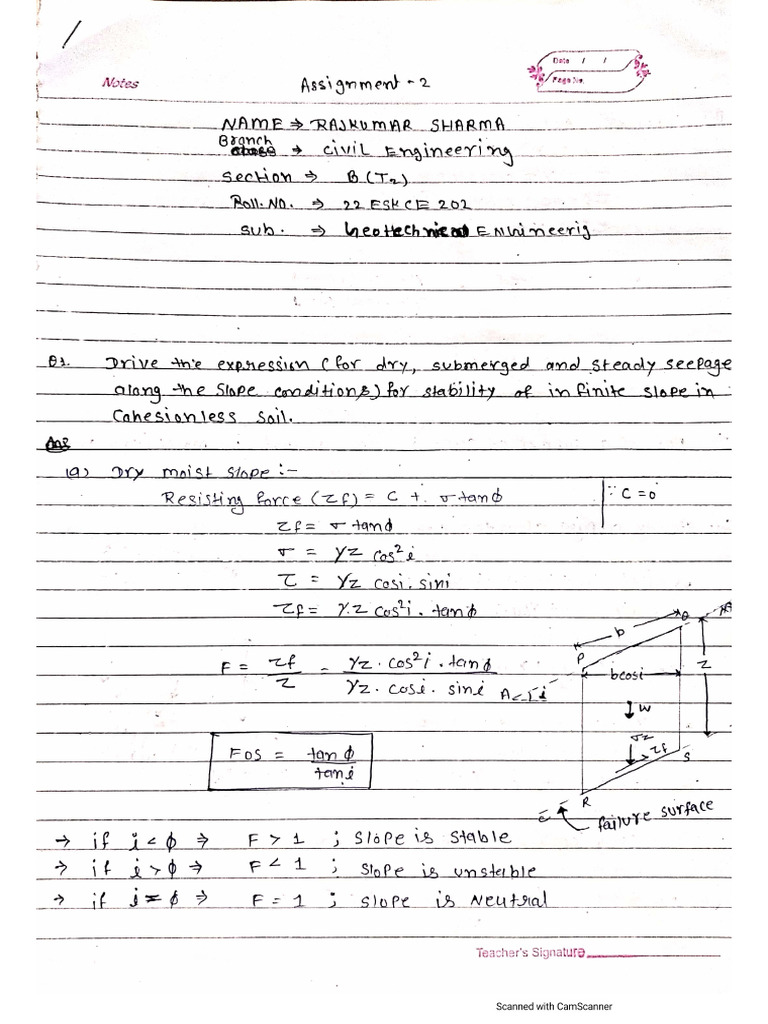 Notes
Assignment - 2
Date / /
Page No.
NAME ⇒ RAJKUMAR SHARMA
Branch → Civil Engineering
Section ⇒ B (T2)
Roll. NO. ⇒ 22 ESKCE 202
Sub. ⇒ Geotechnical ENhineerig
Q1. Drive the expression (for dry, submerged and steady seepage
along the slope conditions) for stability of infinite slope in
Cohesionless Soil.
Ans
(a) Dry moist slope :-
Resisting force (τf) = C + σ tanϕ
∵ C = 0
τf = σ tanϕ
σ = γz cos²i
τ = γz cosi. sini
τf = γ.z cos²i. tanϕ
F = τf/τ = γz. cos²i. tanϕ / γz. cosi. sini
FOS = tanϕ / tani
b
Q
P
bcosi
z
A
i
W
σz
τf
S
R
failure surface
→ if i < ϕ ⇒ F > 1 ; Slope is stable
→ if i > ϕ ⇒ F < 1 ; Slope is unstable
→ if i = ϕ ⇒ F = 1 ; slope is Neutral
Teacher's Signature
Scanned with CamScanner